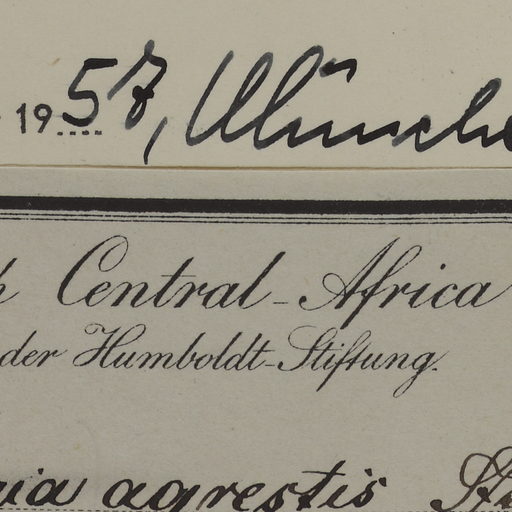 1957, Münche
Central-Africa
der Humboldt-Stiftung.
agrestis